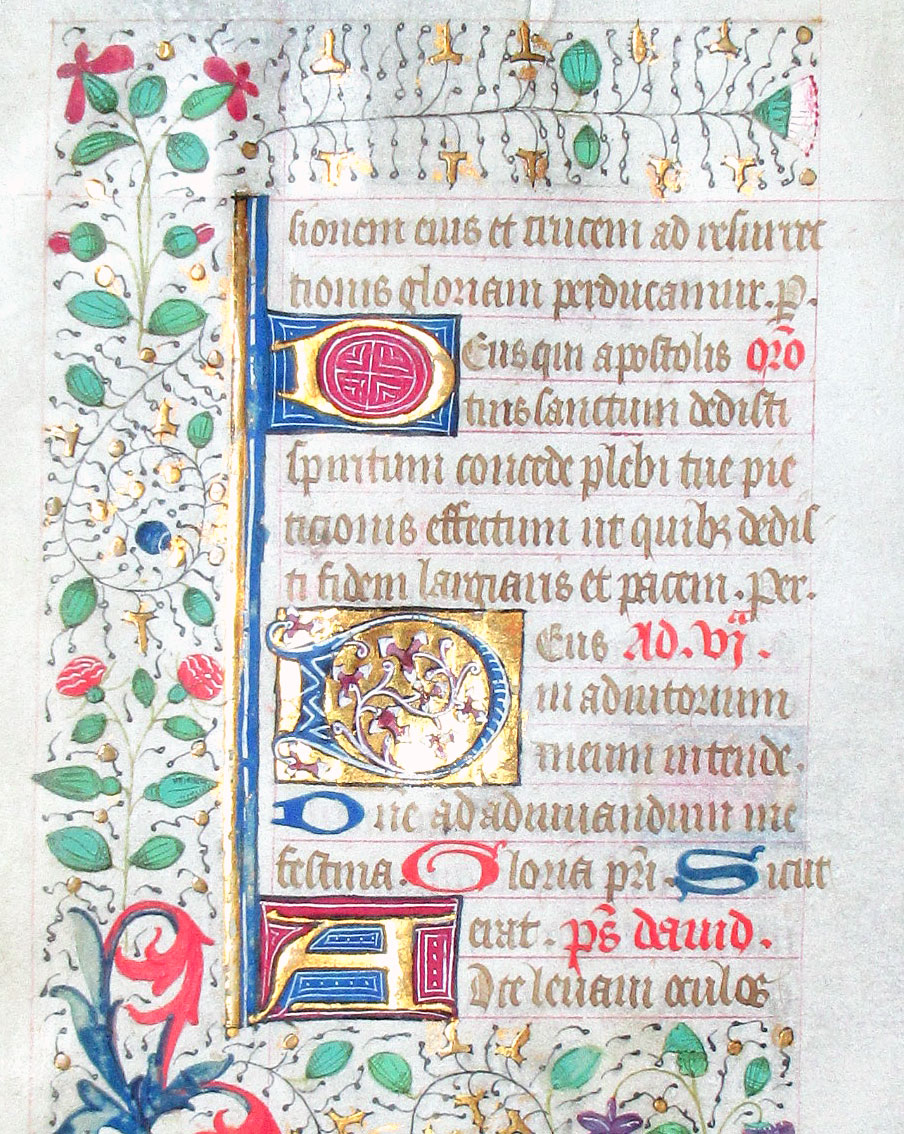 sionem eius et crucem ad resurrec
tionis gloriam perducamur. P.
Deus qui apostolis orō
tuis sanctum dedisti
spiritum concede plebi tue pie
ticionis effectum ut quibꝫ dedis
ti fidem largiaris et pacem. Per.
Deus Ad. vj̄.
in adiutorium
meum intende.
Dn̄e ad adiuuandum me
festina. Gloria pr̄i. Sicut
erat. p̄s dauid.
Ad te leuaui oculos